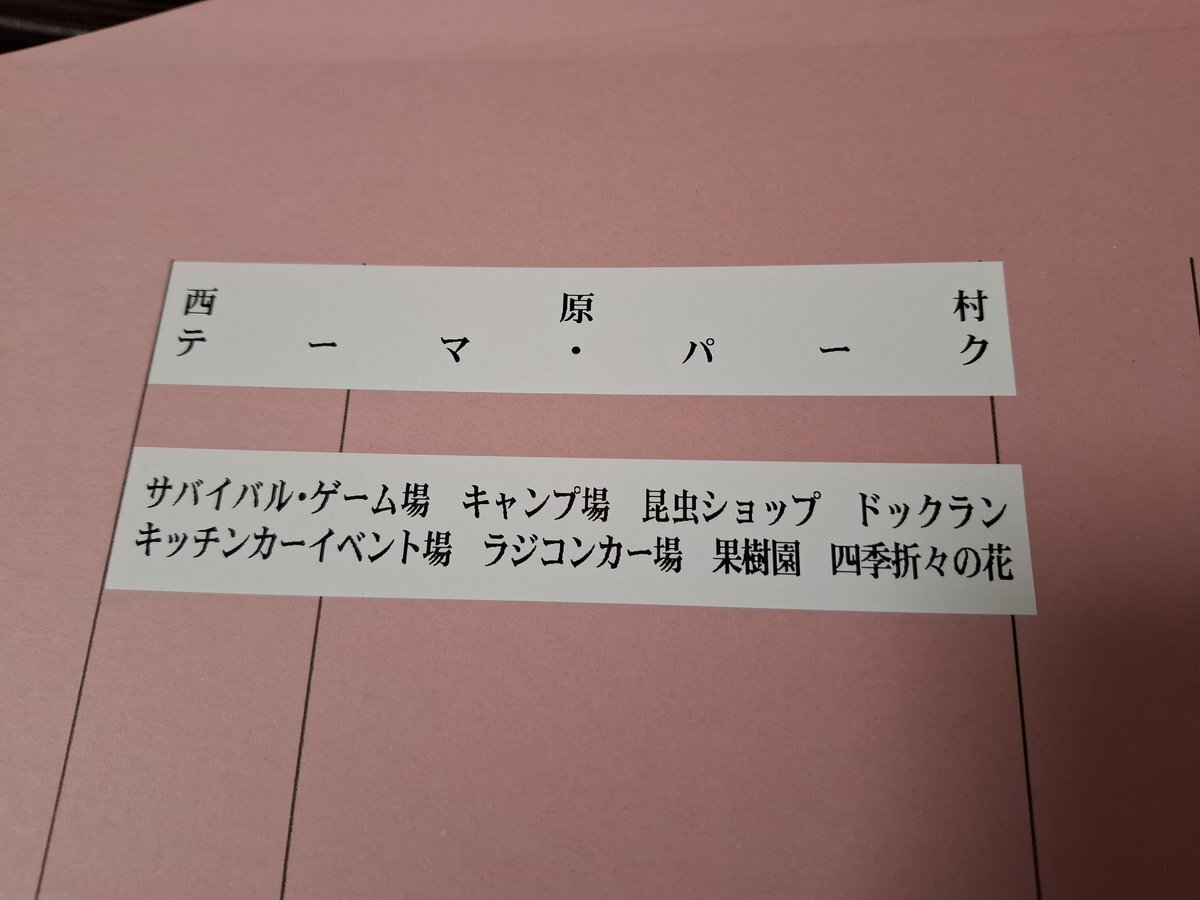 西原村
テーマ・パーク
サバイバル・ゲーム場　キャンプ場　昆虫ショップ　ドックラン
キッチンカーイベント場　ラジコンカー場　果樹園　四季折々の花